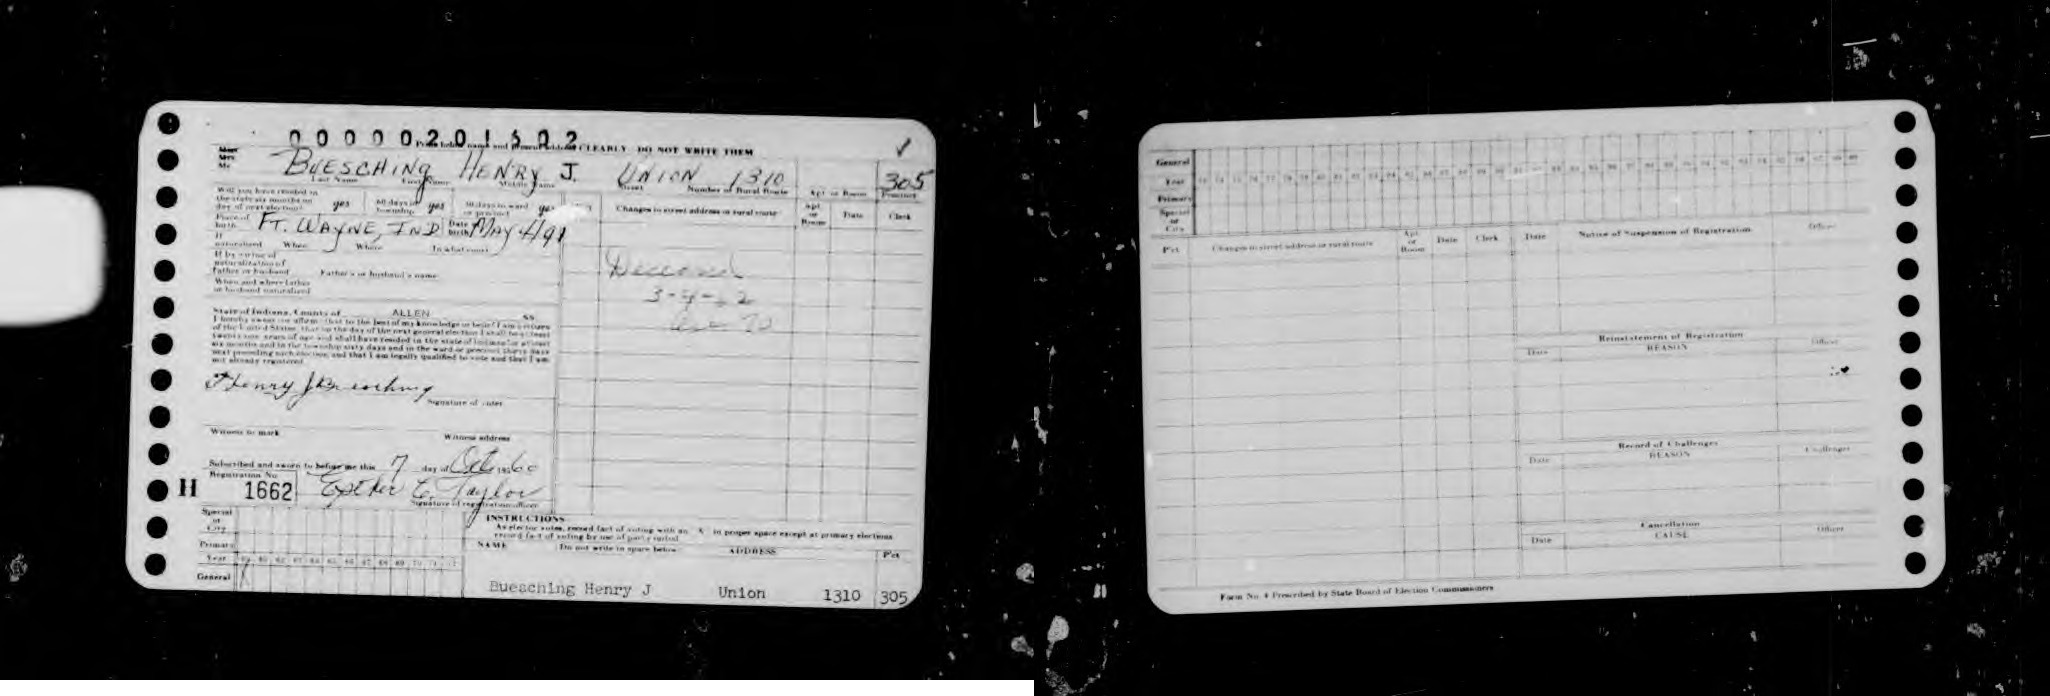 00000201502
Print below name and present address CLEARLY DO NOT WRITE THEM
Mrs.
BUESCHING HENRY J. UNION 1310 305
Last Name First Name Middle Name Street Number of Rural Route Apt. or Room Precinct
Will you have resided in
the state six months on yes 60 days in township yes 30 days in ward or precinct yes
day of next election?
Changes to street address or rural route Apt. or Room Date Clerk
Place of birth FT. WAYNE, IND Date birth MAY
If naturalized When Where In what court
If by virtue of
naturalization of
Father or husband Father's or husband's name
When and where father
or husband naturalized
Deceased
3-4-
State of Indiana, County of ALLEN SS
I hereby swear or affirm that to the best of my knowledge or belief I am a citizen
of the United States, that on the day of the next general election I shall be at least
twenty one years of age and shall have resided in the state of Indiana for at least
six months and in the township sixty days and in the ward or precinct thirty days
next preceding such election, and that I am legally qualified to vote and that I am
not already registered.
Henry J Buesching
Signature of voter
Witness to mark Witness address
Subscribed and sworn to before me this 7 day of Oct 1960
Registration No.
H 1662 Esther E. Taylor
Signature of registration officer
Special
or
City
Primary
Year
General X
INSTRUCTIONS
As elector votes, record fact of voting with an X in proper space except at primary elections
record fact of voting by use of party initial
NAME Do not write in space below ADDRESS P'ct
Buesching Henry J Union 1310 305
General
Year
Primary
Special
or
City
P'ct Changes to street address or rural route Apt. or Room Date Clerk
Date Notice of Suspension of Registration Officer
Reinstatement of Registration
Date REASON Officer
Record of Challenges
Date REASON Challenger
Cancellation
Date CAUSE Officer
Form No. 4 Prescribed by State Board of Election Commissioners